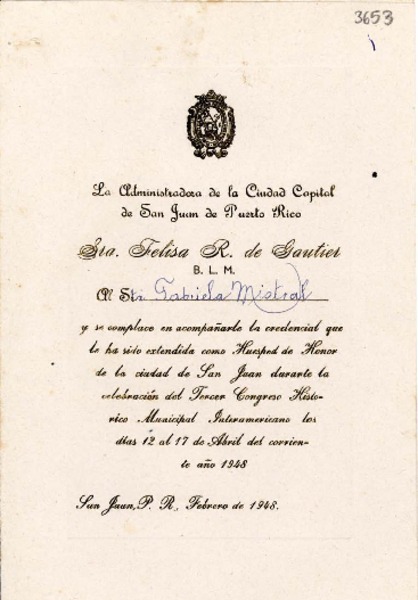 3653
La Administradora de la Ciudad Capital
de San Juan de Puerto Rico
Sra. Felisa R. de Gautier
B. L. M.
Al Sta Gabriela Mistral
y se complace en acompañarle la credencial que
le ha sido extendida como Huesped de Honor
de la ciudad de San Juan durante la
celebración del Tercer Congreso Histo-
rico Municipal Interamericano los
dias 12 al 17 de Abril del corrien-
te año 1948
San Juan, P. R., Febrero de 1948.